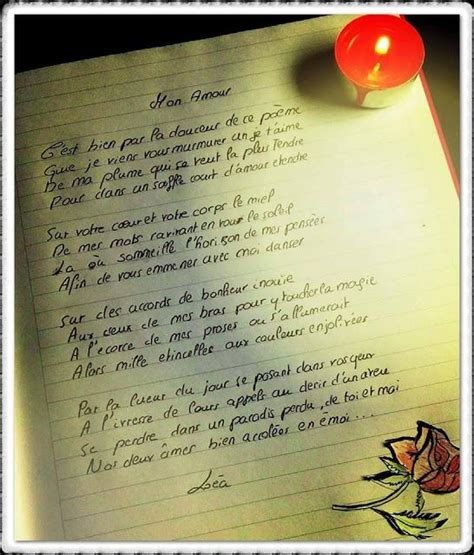 Mon Amour
C'est bien par la douceur de ce poème
Que je viens vous murmurer un je t'aime
De ma plume qui se veut la plus tendre
Pour dans un souffle court d'amour étendre
Sur votre cœur et votre corps le miel
De mes mots ravivant en vous le soleil
La où sommeille l'horizon de mes pensées
Afin de vous emmener avec moi danser
Sur des accords de bonheur inouïe
Aux creux de mes bras pour y toucher la magie
A l'écorce de mes proses où s'allumerait
Alors mille étincelles aux couleurs enjolivées
Par la lueur du jour se posant dans vos yeux
A l'ivresse de leurs appels au désir d'un aveu
Se perdre dans un paradis perdu, de toi et moi
Nos deux âmes bien accolées en émoi...
Léa